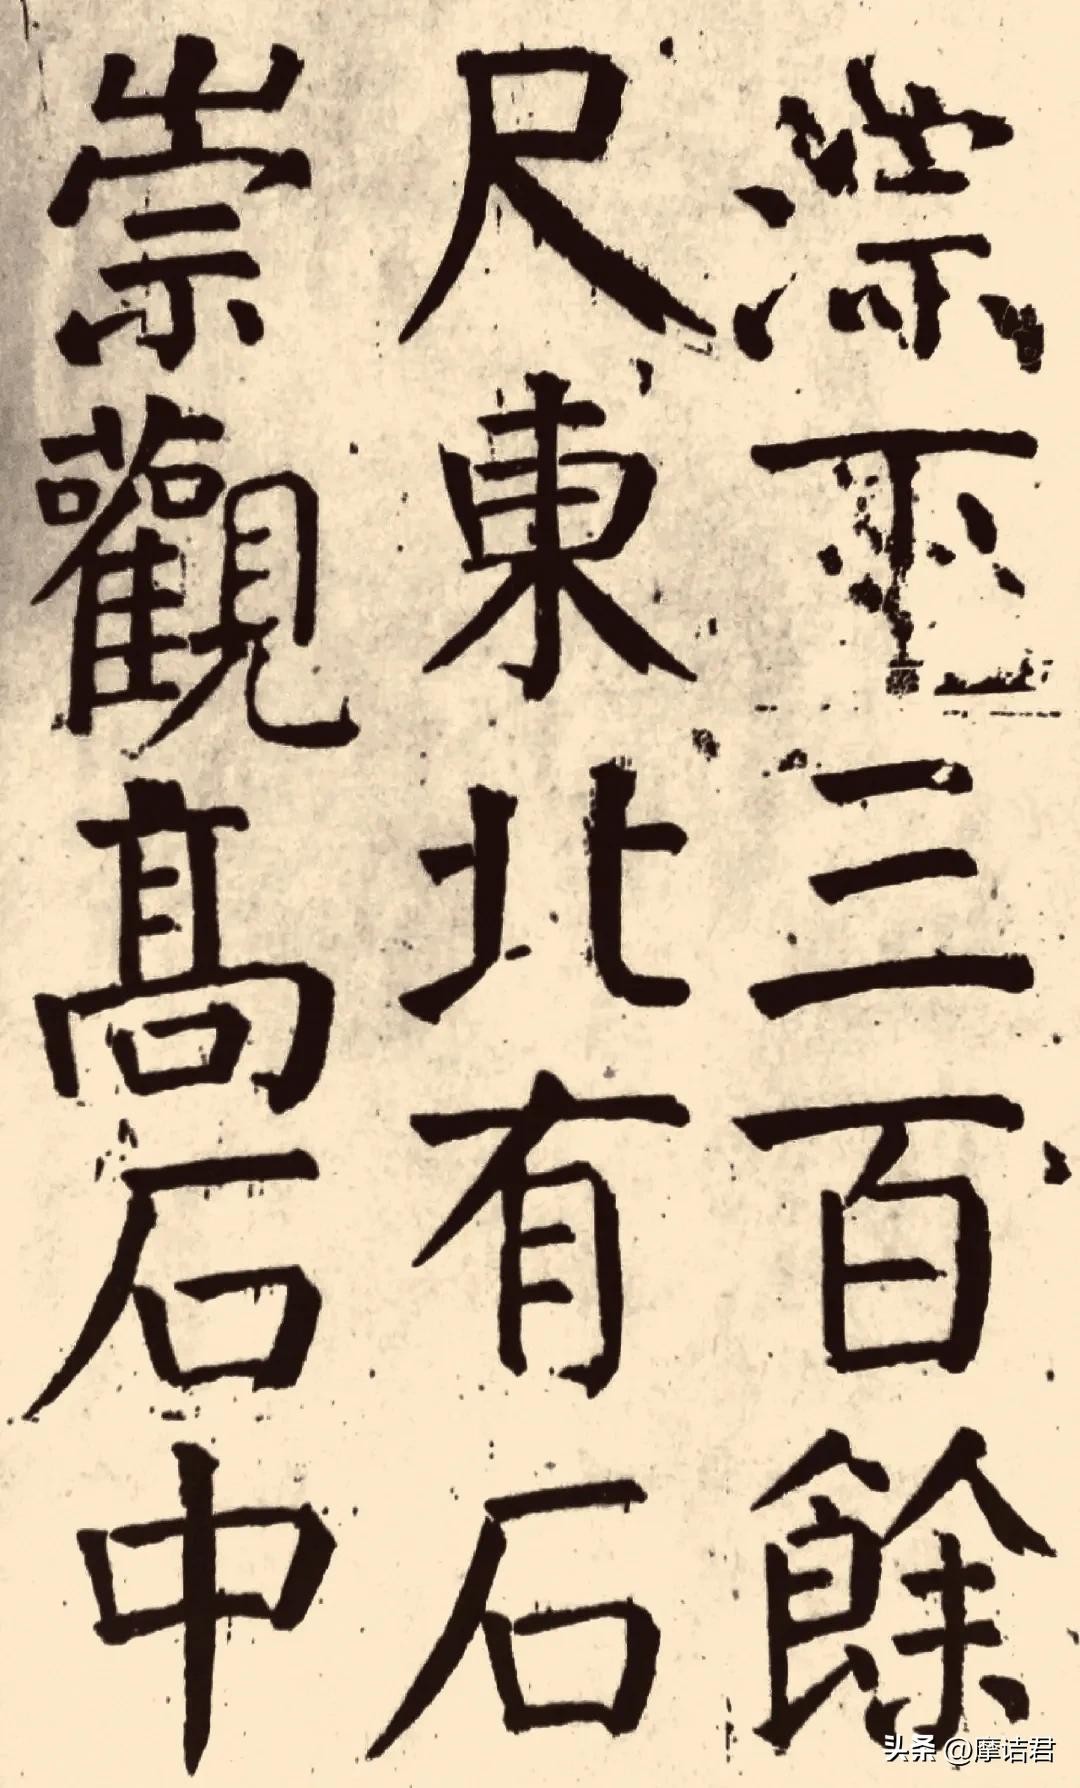 淙下三百餘
尺東北有石
崇觀髙石中
头条 @摩诘君